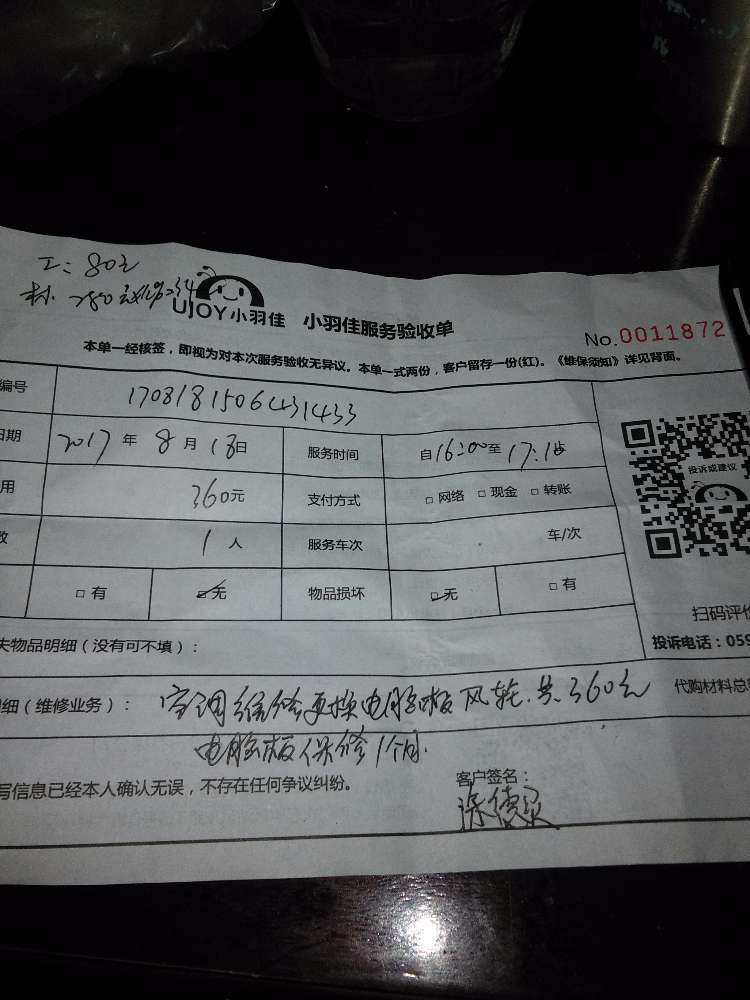 工: 80元
材: 280元
UJOY小羽佳 小羽佳服务验收单
No.0011872
本单一经核签，即视为对本次服务验收无异议。本单一式两份，客户留存一份(红)。《维保须知》详见背面。
编号 1708181506431433
日期 2017年8月18日 服务时间 自16:00至17:15
用 360元 支付方式 □网络 □现金 □转账
投诉或建议
数 1人 服务车次 车/次
□有 ☑无 物品损坏 ☑无 □有
扫码评价
失物品明细（没有可不填）：
投诉电话：059
明细（维修业务）： 空调维修更换电脑板风轮.共360元 代购材料总
电脑板保修1个月.
写信息已经本人确认无误，不存在任何争议纠纷。 客户签名：